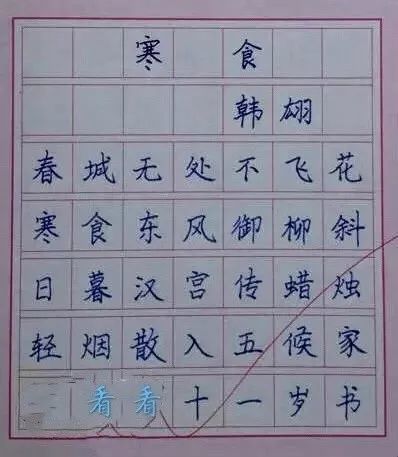 寒食
韩翃
春城无处不飞花
寒食东风御柳斜
日暮汉宫传蜡烛
轻烟散入五候家
看看十一岁书